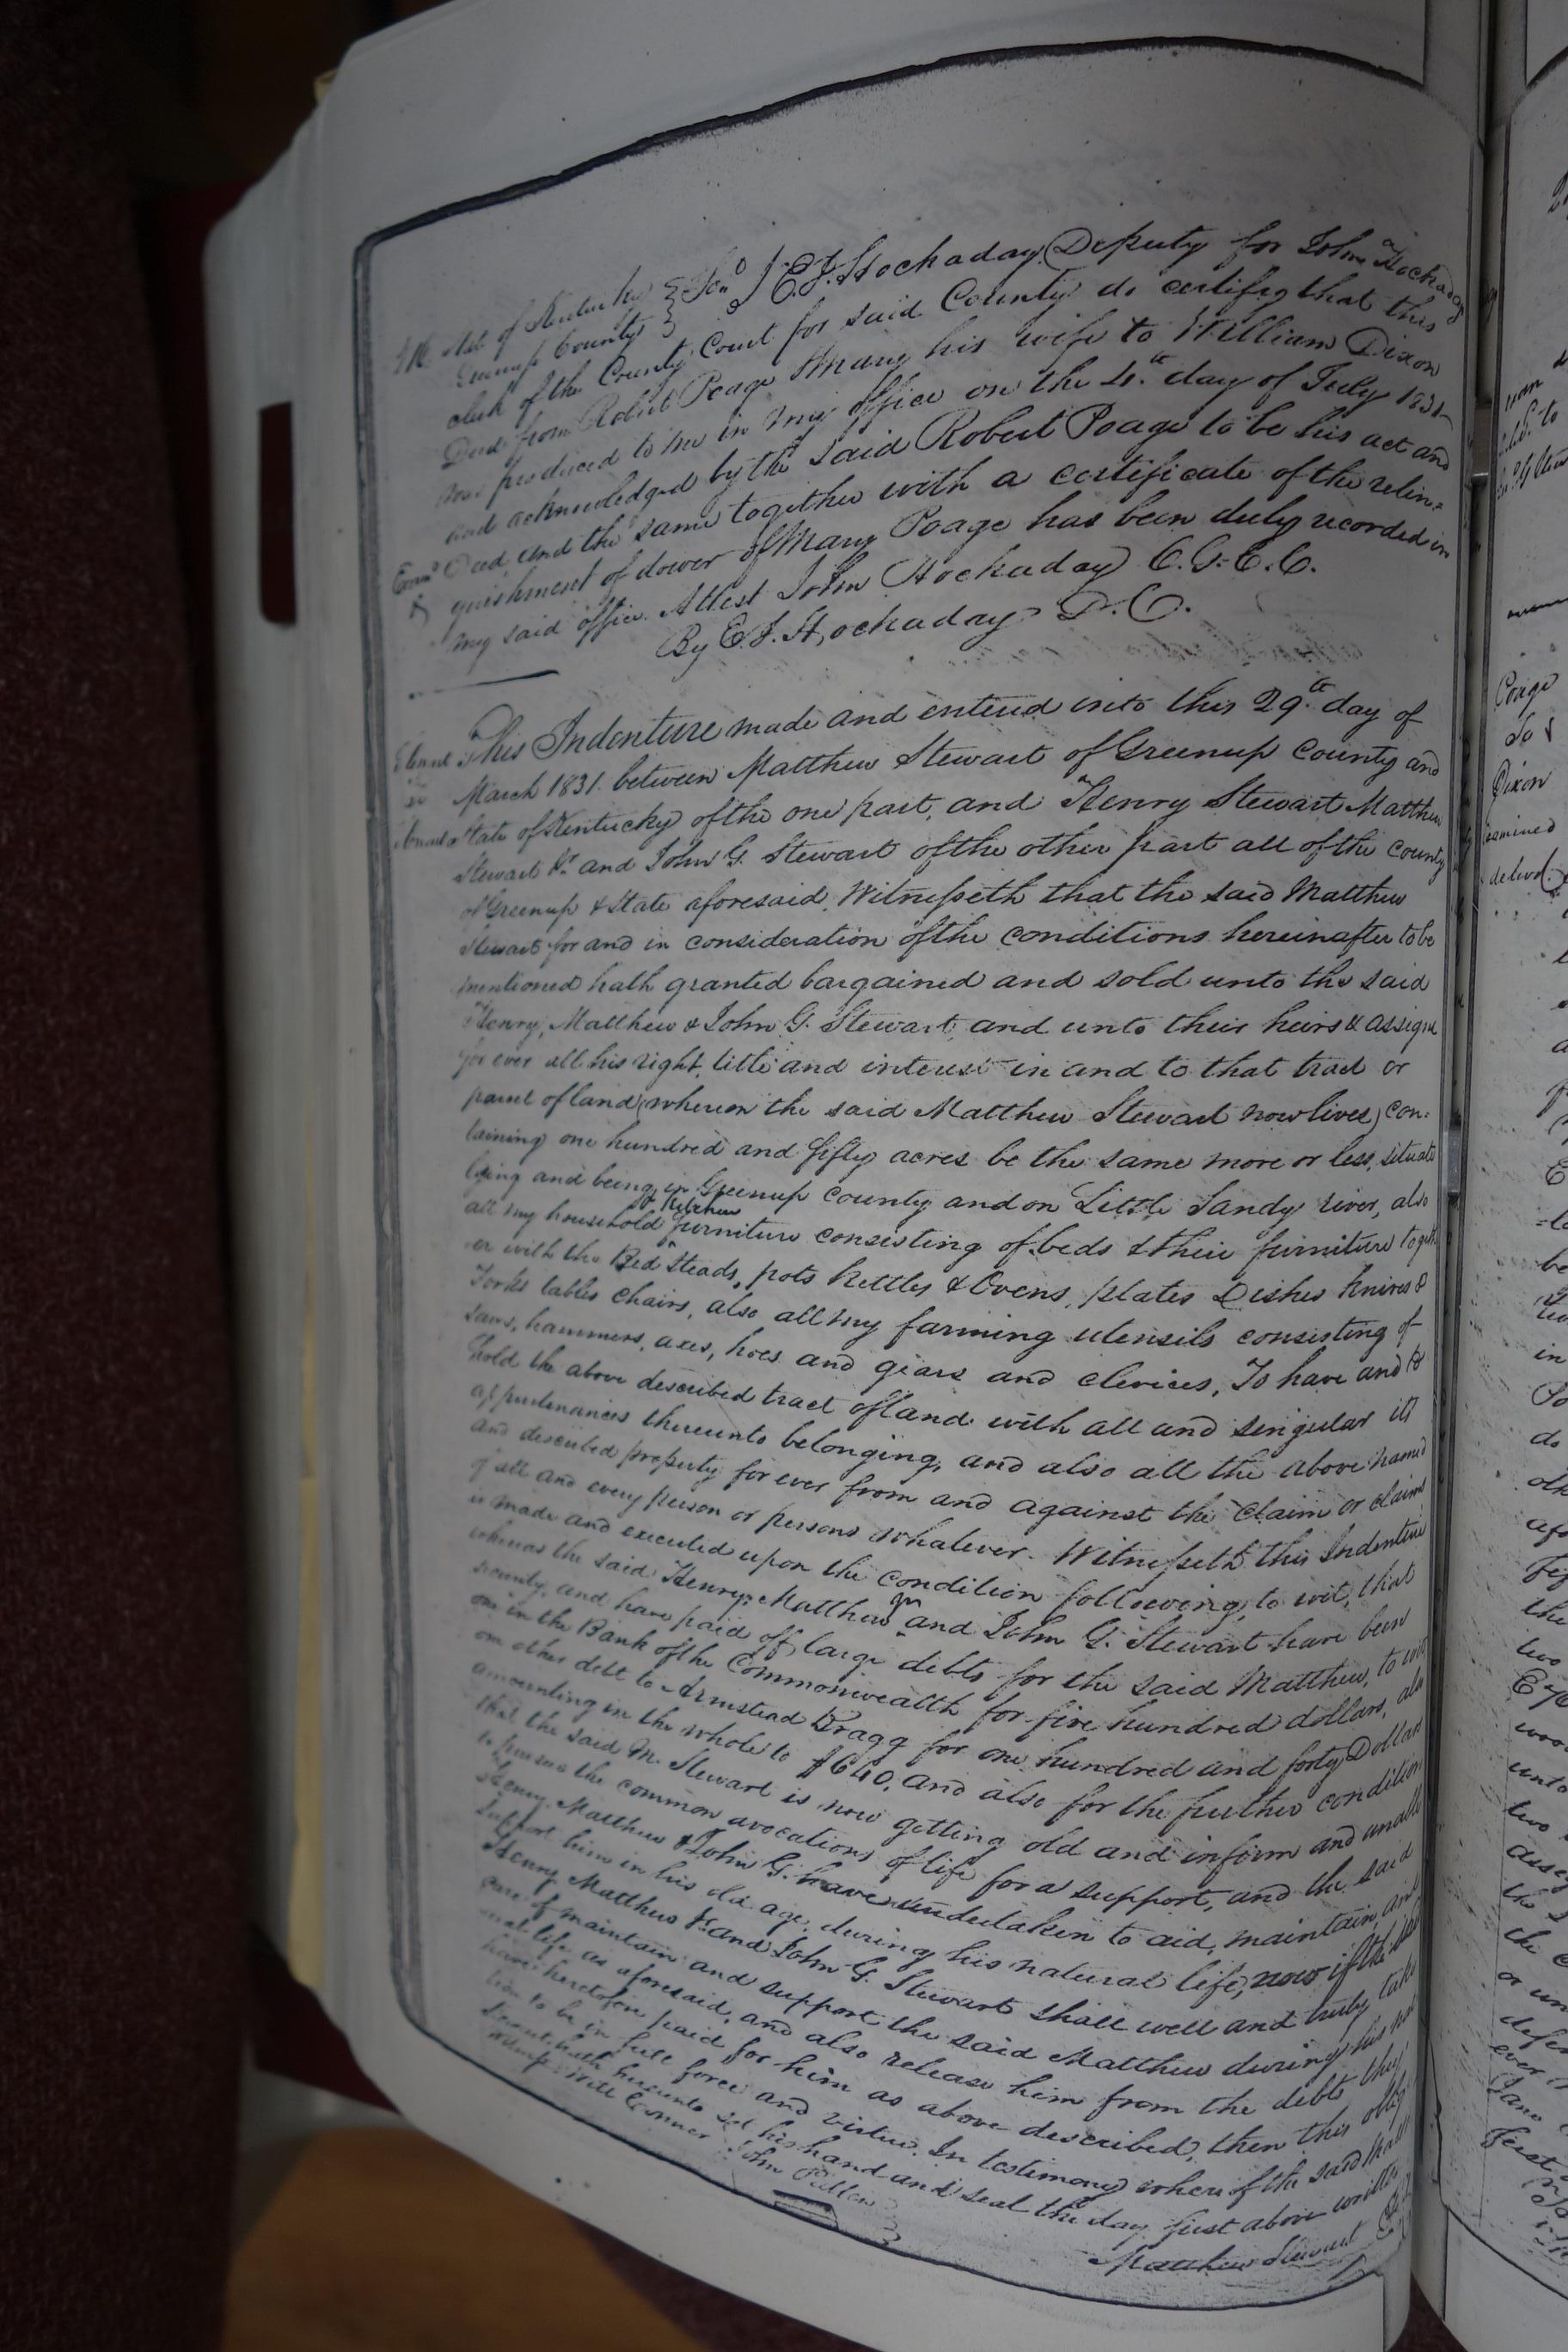 State of Kentucky
Greenup County } Sct. I E. J. Hockaday Deputy for John Hockaday
clerk of the County Court for said County do certify that this
Deed from Robert Poage & Mary his wife to William Dixon
was produced to me in my office on the 4th day of July 1831
and acknowledged by the said Robert Poage to be his act and
Deed and the same together with a certificate of the relin=
quishment of dower of Mary Poage has been duly recorded in
my said office. Attest John Hockaday C.G.C.C.
By E. J. Hockaday D.C.
This Indenture made and entered into this 29th day of
March 1831 between Matthew Stewart of Greenup County and
State of Kentucky of the one part, and Henry Stewart Matthew
Stewart Jr and John G. Stewart of the other part all of the county
of Greenup & State aforesaid. Witnesseth that the said Matthew
Stewart for and in consideration of the conditions hereinafter to be
mentioned hath granted bargained and sold unto the said
Henry, Matthew & John G. Stewart, and unto their heirs & assigns
for ever all his right, title and interest in and to that tract or
parcel of land (whereon the said Matthew Stewart now lives) con=
taining one hundred and fifty acres be the same more or less, situate
lying and being in Greenup County and on Little Sandy river, also
all my household & Kitchen furniture consisting of beds & their furniture togeth
er with the Bed Steads, pots kettles & Ovens, plates Dishes knives &
Forks tables chairs, also all my farming utensils consisting of
saws, hammers, axes, hoes and gears and clevices, To have and to
hold the above described tract of land with all and singular its
appurtenances thereunto belonging, and also all the above named
and described property for ever from and against the claim or claims
of all and every person or persons whatever. Witnesseth this Indenture
is made and executed upon the condition following, to wit, that
whereas the said Henry, Matthew Jr and John G. Stewart have been
security, and have paid off large debts for the said Matthew, to wit
one in the Bank of the Commonwealth for five hundred dollars, also
one other debt to Armstead Bragg for one hundred and forty Dollars
amounting in the whole to $640, and also for the further condition
that the said M. Stewart is now getting old and infirm and unable
to pursue the common avocations of life for a support, and the said
Henry, Matthew & John G. have undertaken to aid, maintain, and
support him in his old age, during his natural life, now if the said
Henry Matthew Jr and John G. Stewart shall well and truly take
care of maintain and support the said Matthew during his nat
ural life as aforesaid, and also release him from the debts they
have heretofore paid for him as above described, then this oblig
tion to be in full force and virtue. In testimony whereof the said Matt
Stewart hath hereunto set his hand and seal the day first above written
John
Matthew Stewart
Poage
to &
Dixon
examined